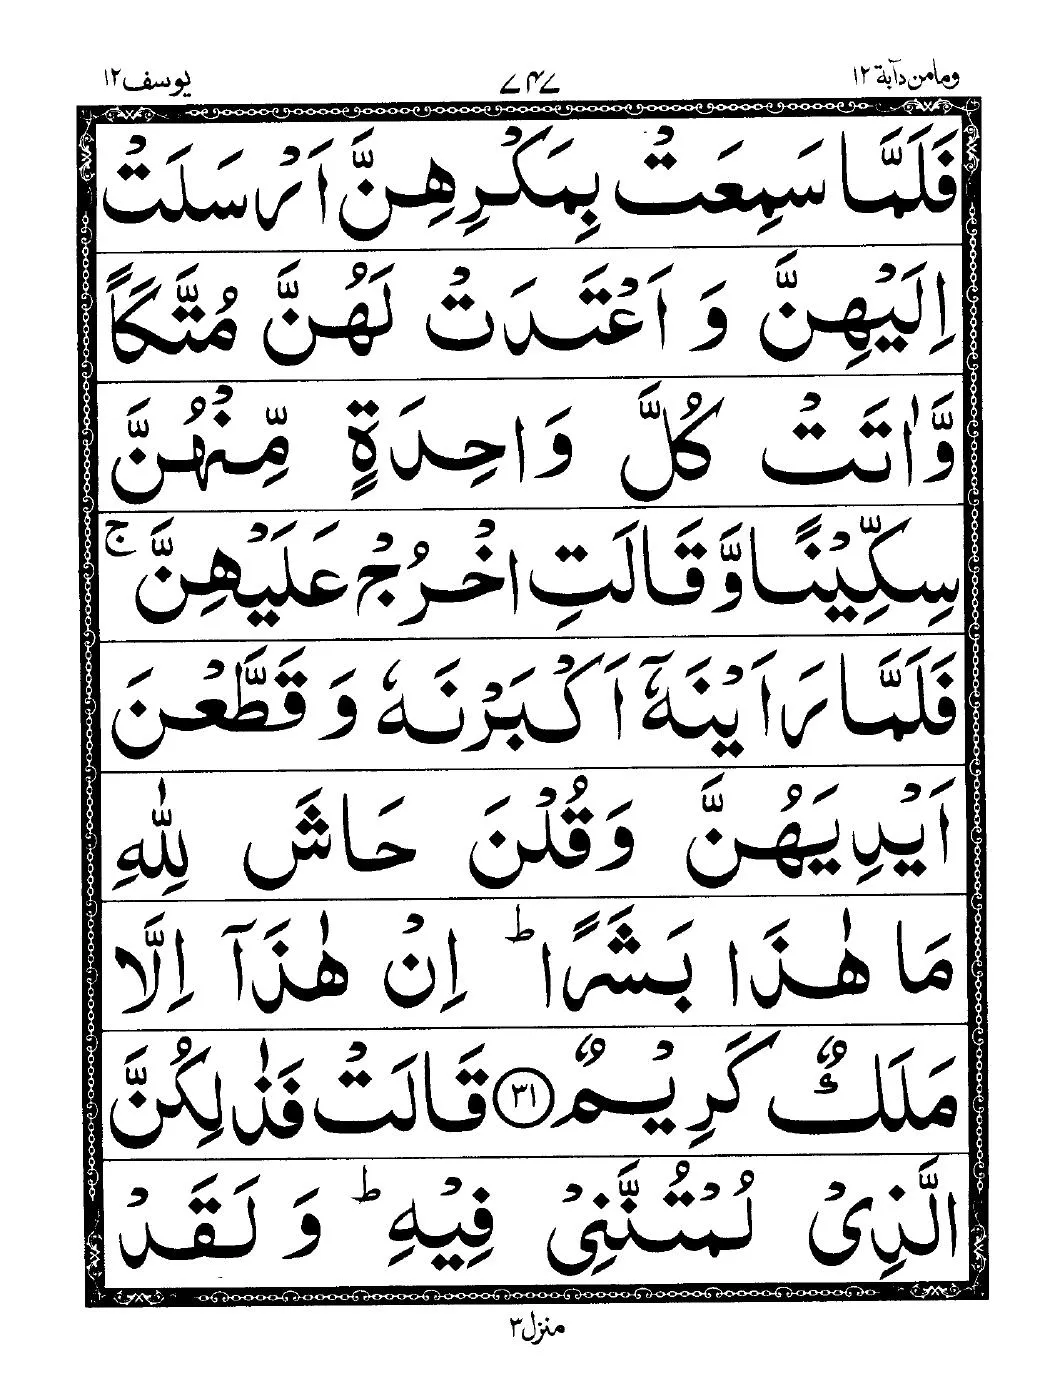 وما من دآبة ١٢ ٧٤٧ يوسف ١٢
فَلَمَّا سَمِعَتْ بِمَكْرِهِنَّ اَرْسَلَتْ
اِلَيْهِنَّ وَ اَعْتَدَتْ لَهُنَّ مُتَّكَاً
وَّاٰتَتْ كُلَّ وَاحِدَةٍ مِّنْهُنَّ
سِكِّيْنًا وَّقَالَتِ اخْرُجْ عَلَيْهِنَّ ۚ
فَلَمَّا رَاَيْنَهٗۤ اَكْبَرْنَهٗ وَ قَطَّعْنَ
اَيْدِيَهُنَّ وَقُلْنَ حَاشَ لِلّٰهِ
مَا هٰذَا بَشَرًا ؕ اِنْ هٰذَاۤ اِلَّا
مَلَكٌ كَرِيْمٌ ﴿۳۱﴾ قَالَتْ فَذٰلِكُنَّ
الَّذِیْ لُمْتُنَّنِیْ فِيْهِ ؕ وَ لَقَدْ
منزل ٣